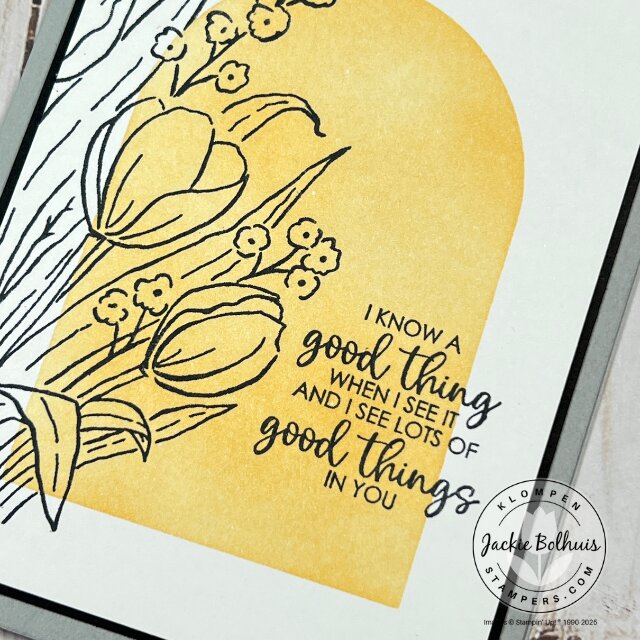 I KNOW A
good thing
WHEN I SEE IT
AND I SEE LOTS OF
good things
IN YOU
KLOMPEN
Jackie Bolhuis
STAMPERS.COM
Images © Stampin' Up!® 1990-2025